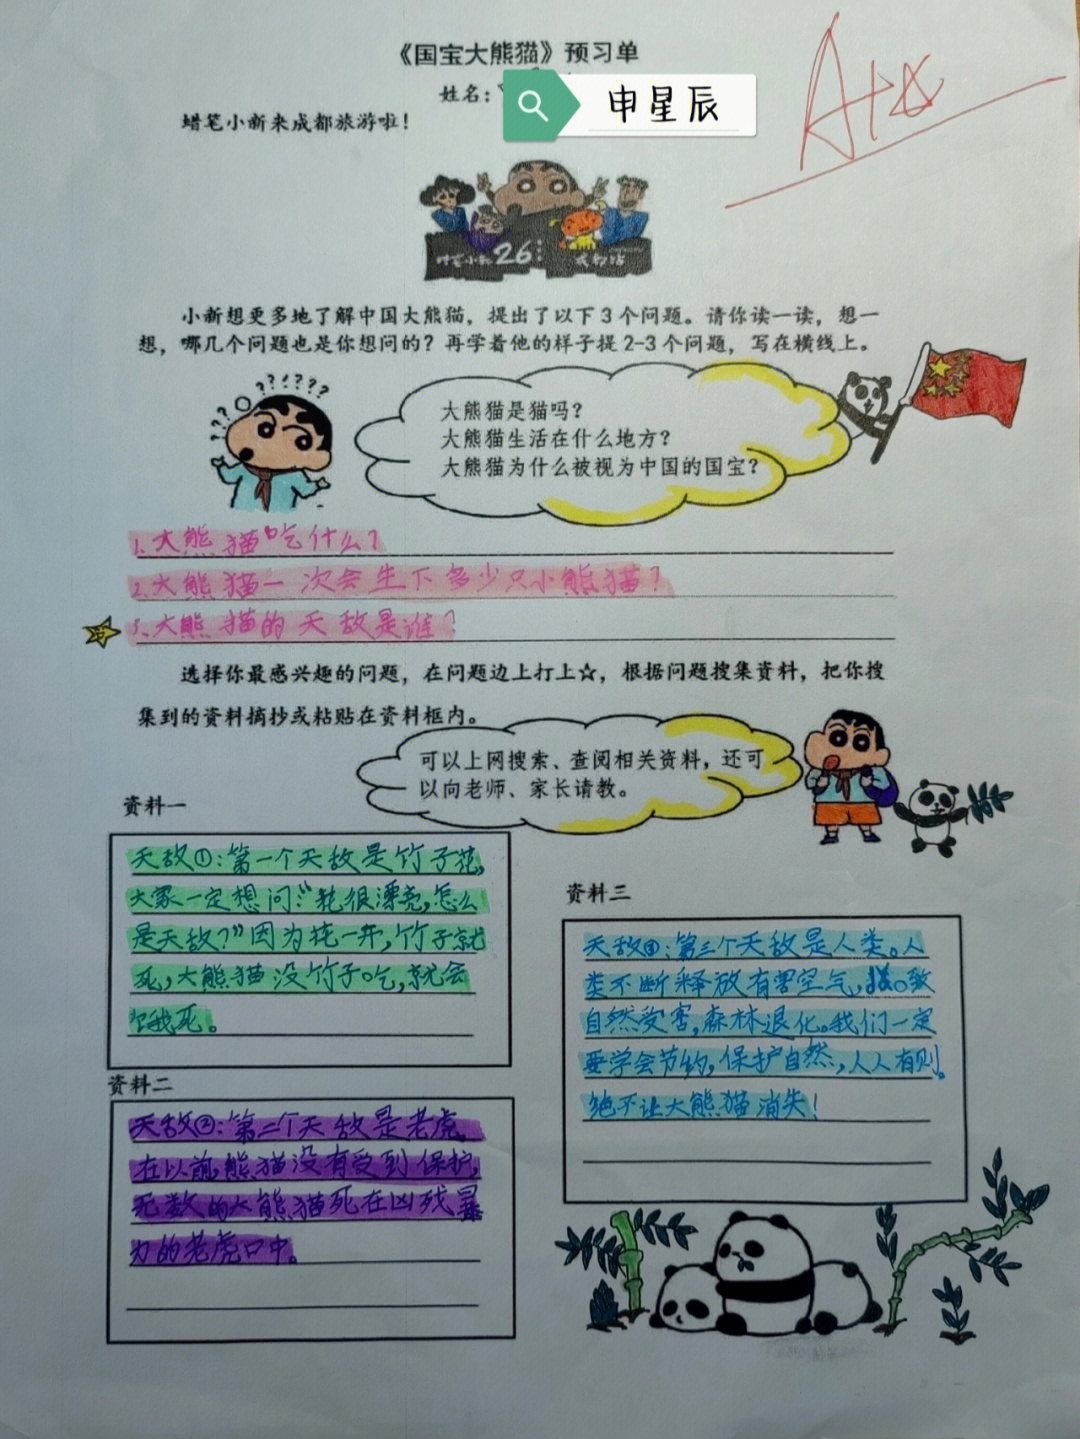 《国宝大熊猫》预习单
姓名：
申星辰
A+☆
蜡笔小新来成都旅游啦！
蜡笔小新26:
小新想更多地了解中国大熊猫，提出了以下3个问题。请你读一读，想一
想，哪几个问题也是你想问的？再学着他的样子提2-3个问题，写在横线上。
???!???
???
大熊猫是猫吗？
大熊猫生活在什么地方？
大熊猫为什么被视为中国的国宝？
1.大熊猫吃什么？
2.大熊猫一次会生下多少只小熊猫？
3.大熊猫的天敌是谁？
选择你最感兴趣的问题，在问题边上打上☆，根据问题搜集资料，把你搜
集到的资料摘抄或粘贴在资料框内。
可以上网搜索、查阅相关资料，还可
以向老师、家长请教。
资料一
天敌①：第一个天敌是竹子花，
大家一定想问：“花很漂亮，怎么
是天敌？”因为花一开，竹子就
死，大熊猫没竹子吃，就会
饿死。
资料二
天敌②：第二个天敌是老虎
在以前，熊猫没有受到保护，
无数的大熊猫死在凶残暴
力的老虎口中。
资料三
天敌③：第三个天敌是人类。人
类不断释放有害空气，致
自然受害，森林退化。我们一定
要学会节约，保护自然，人人有则。
绝不让大熊猫消失！